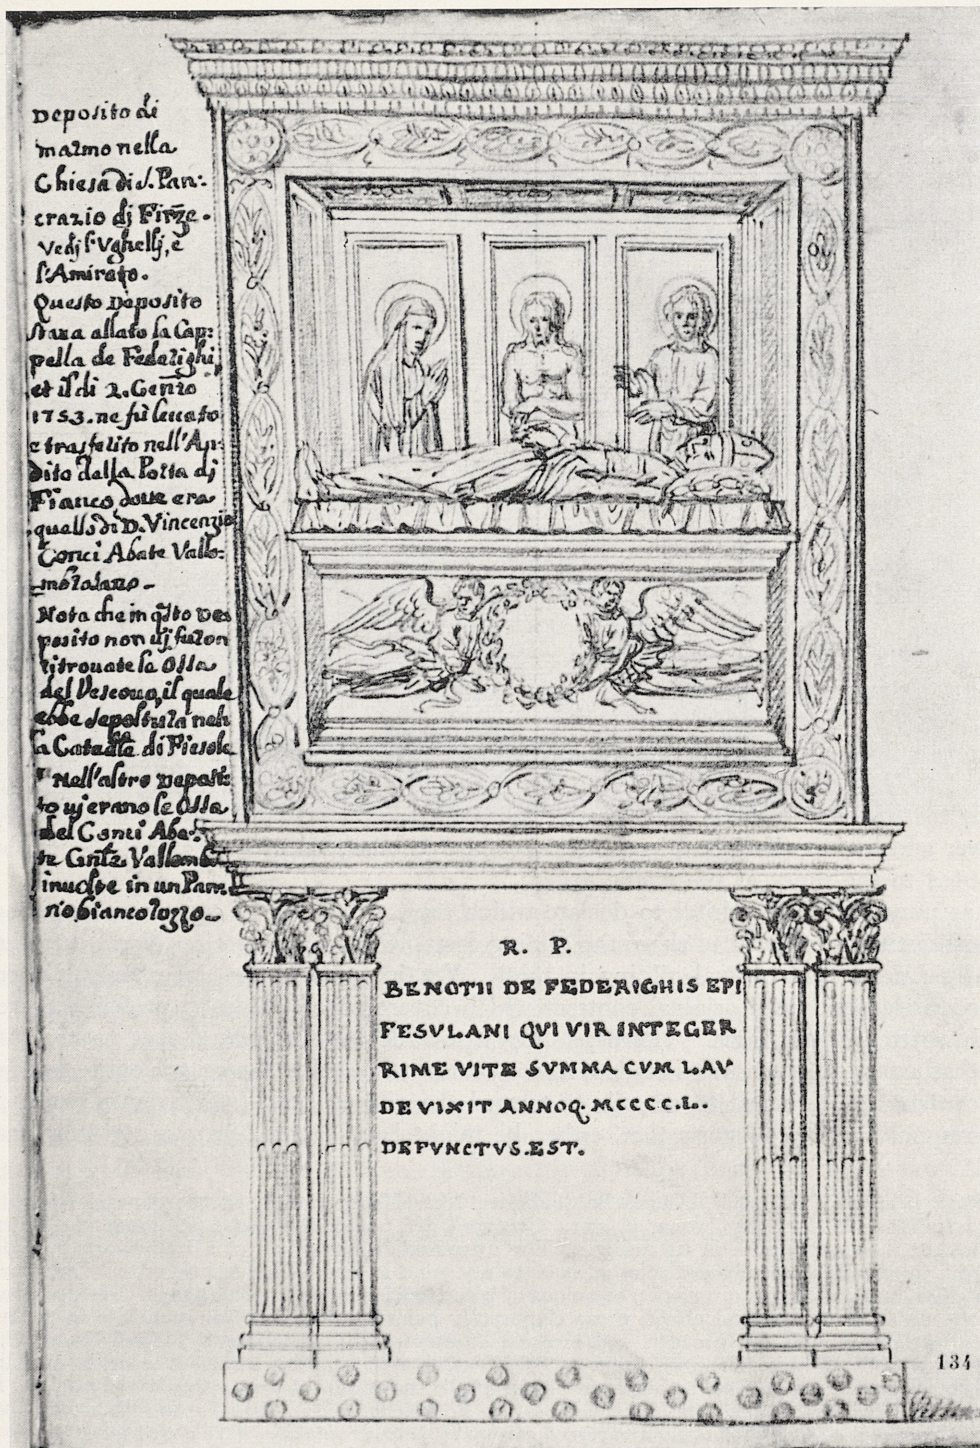 Deposito di
marmo nella
Chiesa di S. Pan:
crazio di Firze.
Vedi l'Ughelli, e
l'Amirato.
Questo Deposito
stava allato la Cap:
pella de Federighi,
et il di 2. Genro
1753. ne fù levato
e trasferito nell'An:
dito della Porta di
Fianco dove era
quello di D. Vincenzio
Conci Abate Vallo:
mbrosano.
Nota che in qsto De
posito non vi furon
ritrouate le Ossa
del Vescouo, il quale
ebbe sepoltura nel
la Catedle di Fiesole
Nell'altro Deposi:
to vi erano le Ossa
del Conci Aba:
te Vallomb
inuolte in un Pan
no bianco rozzo.
R. P.
BENOTII DE FEDERIGHIS EPI
FESVLANI QVI VIR INTEGER
RIME VITE SVMMA CVM LAV
DE VIXIT ANNOQ. MCCCC.L.
DEFVNCTVS.EST.
134